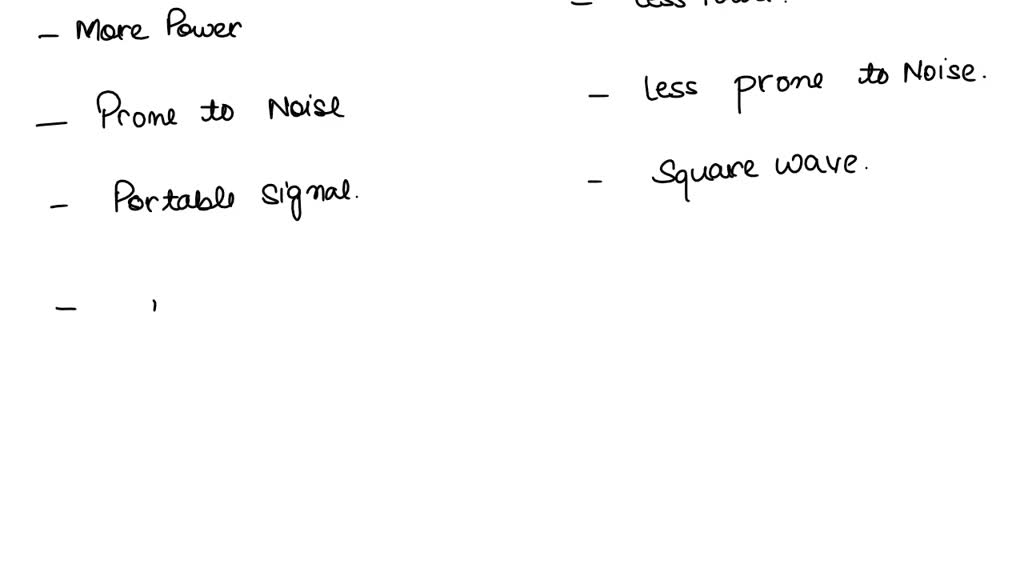 - More Power
- Prone to Noise
- Portable signal.
-
- Less prone to Noise.
- Square wave.